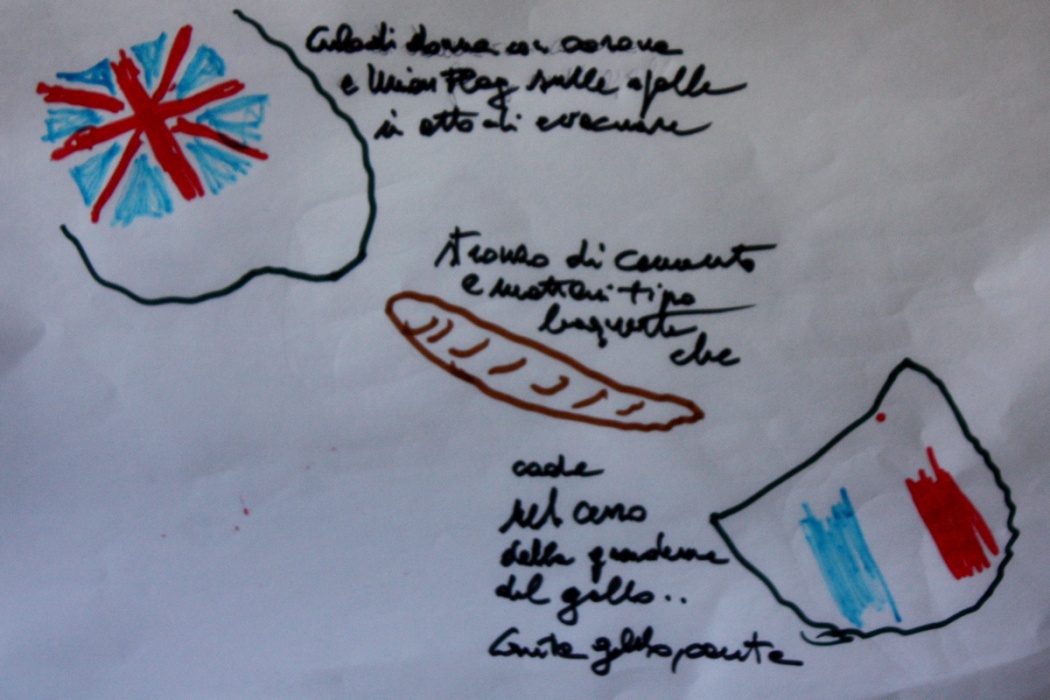 Culo di donna con corona
e Union Flag sulle spalle
in atto di evacuare
stronzo di cemento
e mattoni tipo
baguette
che
cade
nel cesso
della
del gallo..